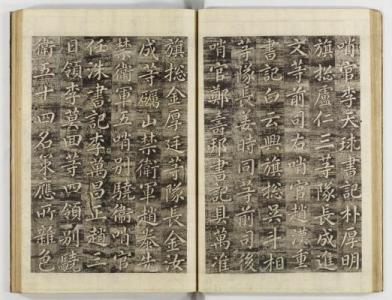 哨官李天球書記朴厚明
旗捴盧仁三等隊長成進
文等前司右哨官趙漢重
書記白云興旗捴吳斗相
等隊長姜時同等前司後
哨官鄭壽邦書記具萬淮
旗捴金厚廷等隊長金汝
成等礪山禁衛軍趙泰先
禁衛軍五哨別驍衛哨官
任洙書記李萬昌正趙三
日領李莫田等四領別驍
衛五十四名策應所雜色